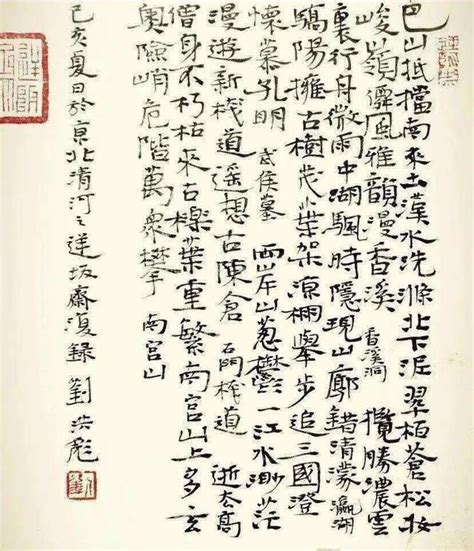 巴山抵擋南來土漢水洗滌北下泥翠栢蒼松妝
峻嶺儒風雅韻漫香溪 香溪洞 攬勝濃雲
裏行舟微雨中湖颿時隱現山廓錯清濛 瀛湖
驕陽擁古樹茂葉架涼棚舉步追三國澄
懷慕孔明 武侯墓 兩岸山蔥鬱一江水渺茫
漫遊新棧道遥想古陳倉 石門棧道 逝太高
僧身不朽枯來古櫟葉重繁南宮山上多玄
奧險峭危階萬衆攀 南宮山
己亥夏日於京北清河之逆坂齋復録 劉洪彪
劉